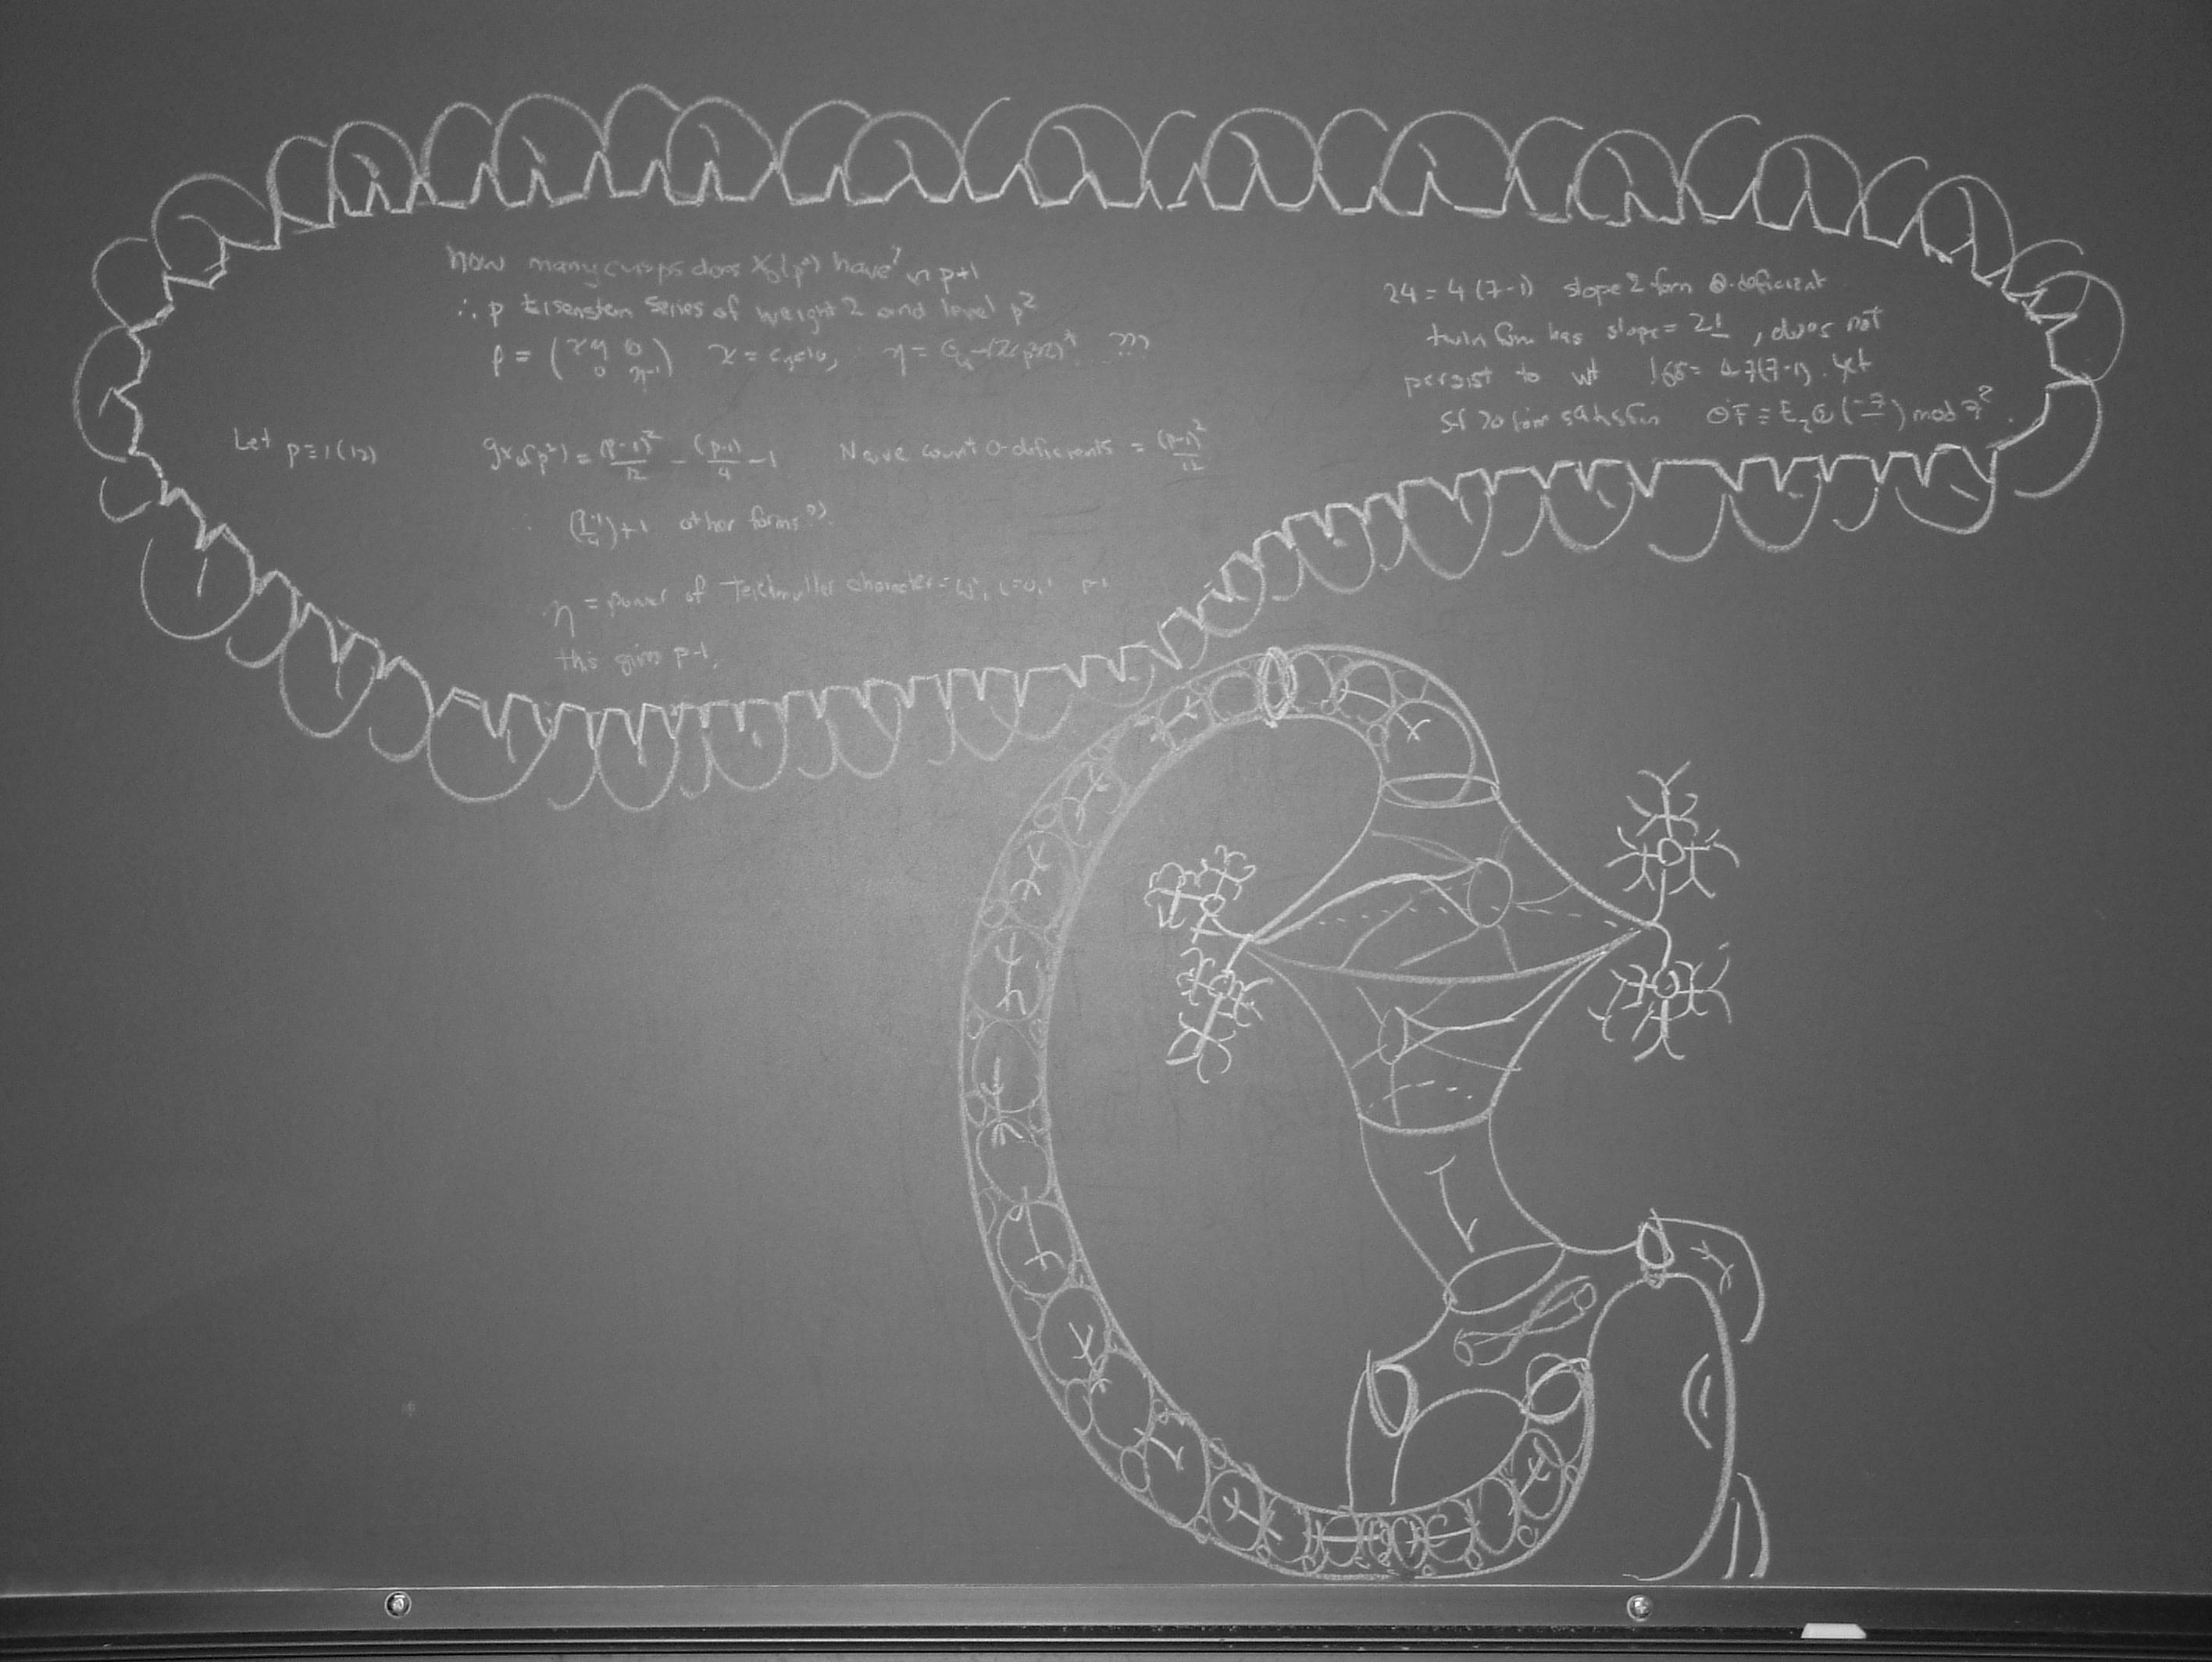 How many cusps does X₀(p²) have? p+1
∴ p Eisenstein series of weight 2 and level p²
ρ = (χη 0
0 η⁻¹) χ = cyclo, η = ???
Let p≡1(12) gX₀(p²) = (p-1)²/12 - (p-1)/4 - 1 Naive count θ-deficients = (p-1)²/12
∴ (p-1/4)+1 other forms??
η = power of Teichmuller character = ωⁱ, i=0,1 p-1
this gives p-1.
24 = 4(7-1) slope 2 form θ-deficient
twin form has slope = 21, does not
persist to wt 168 = 4·7(7-1). Yet
satisfies θF ≡ E₂⊗(-7/) mod 7²